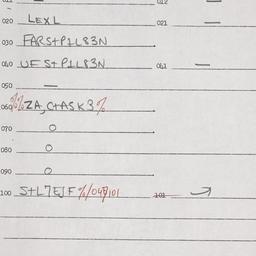 012
020 LEXL 021 —
030 FARS+P1L83N
040 UF S+ P1L83N 041 —
050 —
060 %ZA,C+ASK3%
070 O
080 O
090 O
100 S+L7EJF %/047101 101